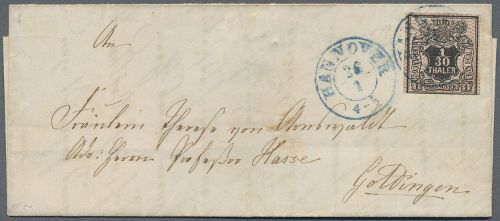 An
HANNOVER
26
1
4-5
1
30
THALER
Fräulein Therese von Arnswaldt
Adr: Herrn Professor Hasse
Göttingen